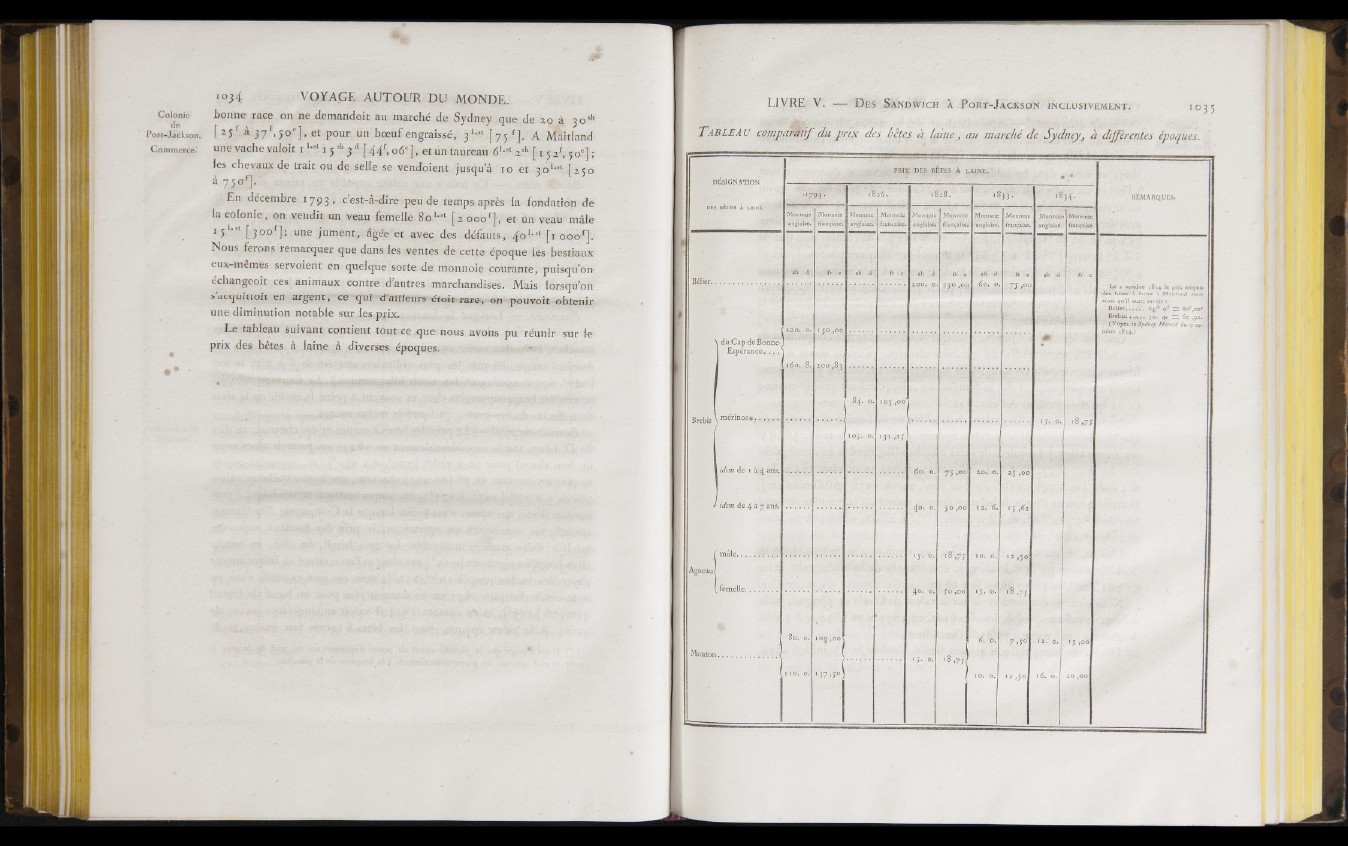 1034 VOYAGE AUTOUR DU MONDE.
Colonie
de
Port-Jackson.
Commerce.
bonne race on ne demandoit au marché de Sydney que de 20 à 30sh
[25f à 37f,50c], et pour un bœuf engraissé, 3l.st [75f]. A Maitland
une vache valoit 1l.st 15sh 3d [44f,06c], et un taureau 6l.st 2sh [152f,50c];
les chevaux de trait ou de selle se vendoient jusqu'à 10 et 30l.st [250
à 750f].
En décembre 1793, c'est-à-dire peu de temps après la fondation de
la colonie, on vendit un veau femelle 80l.st [2 000f], et un veau mâle
15l.st [300f]; une jument, âgée et avec des défauts, 40l.st [1 000f].
Nous ferons remarquer que dans les ventes de cette époque les bestiaux
eux-mêmes servoient en quelque sorte de monnoie courante, puisqu'on
échangeoit ces animaux contre d'autres marchandises. Mais lorsqu'on
s'acquittoit en argent, ce qui d'ailleurs étoit rare, on pouvoit obtenir
une diminution notable sur les prix.
Le tableau suivant contient tout ce que nous avons pu réunir sur le
prix des bêtes à laine à diverses époques.
LIVRE V. — DES SANDWICH À PORT-JACKSON INCLUSIVEMENT. 1035
TABLEAU comparatif du prix des bêtes à laine, au marché de Sydney, à différentes époques.
DÉSIGNATION
DES BÊTES À LAINE.
PRIX DES BÊTES À LAINE.
REMARQUES.
1793. 1826. 1828. 1833. 1834.
Monnoie angloise. Monnoie françaíse. Monnoie angloise. Monnoie française. Monnoie angloise. Monnoie française. Monnoie angloise. Monnoie française. Monnoie angloise. Monnoie française.
sh d fr c sh d fr c sh d fr c sh d fr c sh d fr c
Bélier. 200. 0. 250,00 60. 0. 75,00
Brebis
du Cap de Bonne-
Espérance....
120. 0. 150,00
160. 8. 200,83
mérinos
84. 0. 105,00
105. 0. 131,25
15. 0. 18,75
idem de 1 à 4 ans. 60. 0. 75,00 20. 0. 25,00
idem de 4 à 7 ans. 40. 0. 50,00 12. 6. 15,62
Agneau
mâle. 15. 0. 18,75 10. 0. 12,50
femelle. 40. 0. 50,00 15. 0. 18,75
Mouton.
80. 0. 100,00 6. 0. 7,50 12. 0. 15,00
15. 0. 18,75
110. 0. 137,50 10. 0. 12,50 16. 0. 20,00
1834 le prix moyen
des bêtes à laine à Maitland
ainsi qu'il suit, savoir:
Bélier
Brebis
(Voyez le Sydney Herald du
1834.)